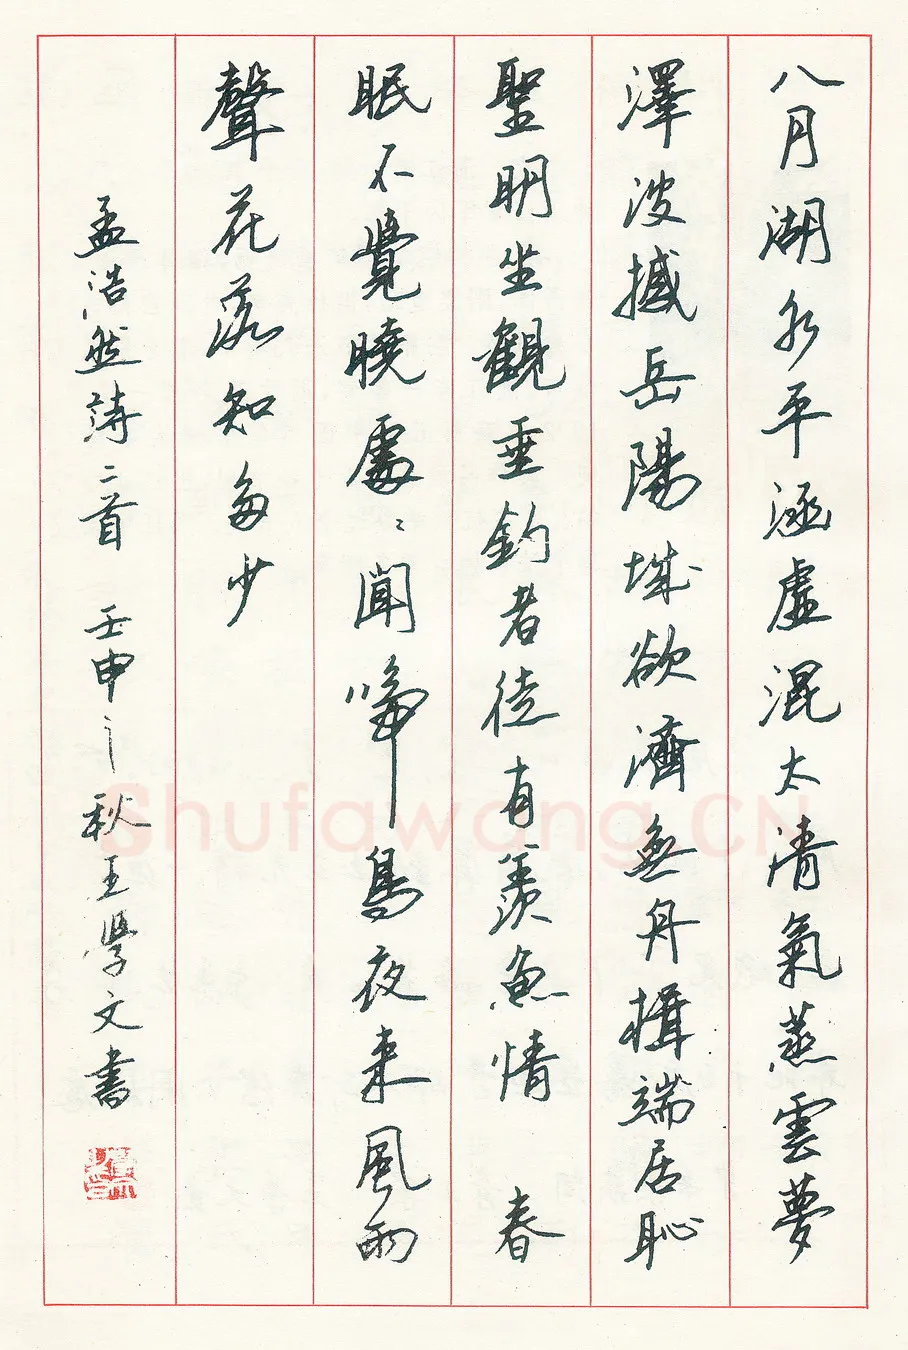 八月湖水平涵虛混太清氣蒸雲夢
澤波撼岳陽城欲濟無舟楫端居恥
聖明坐觀垂釣者徒有羨魚情 春
眠不覺曉處〻聞啼鳥夜来風雨
聲花落知多少
孟浩然詩二首 壬申之秋王學文書
Shufawang.CN